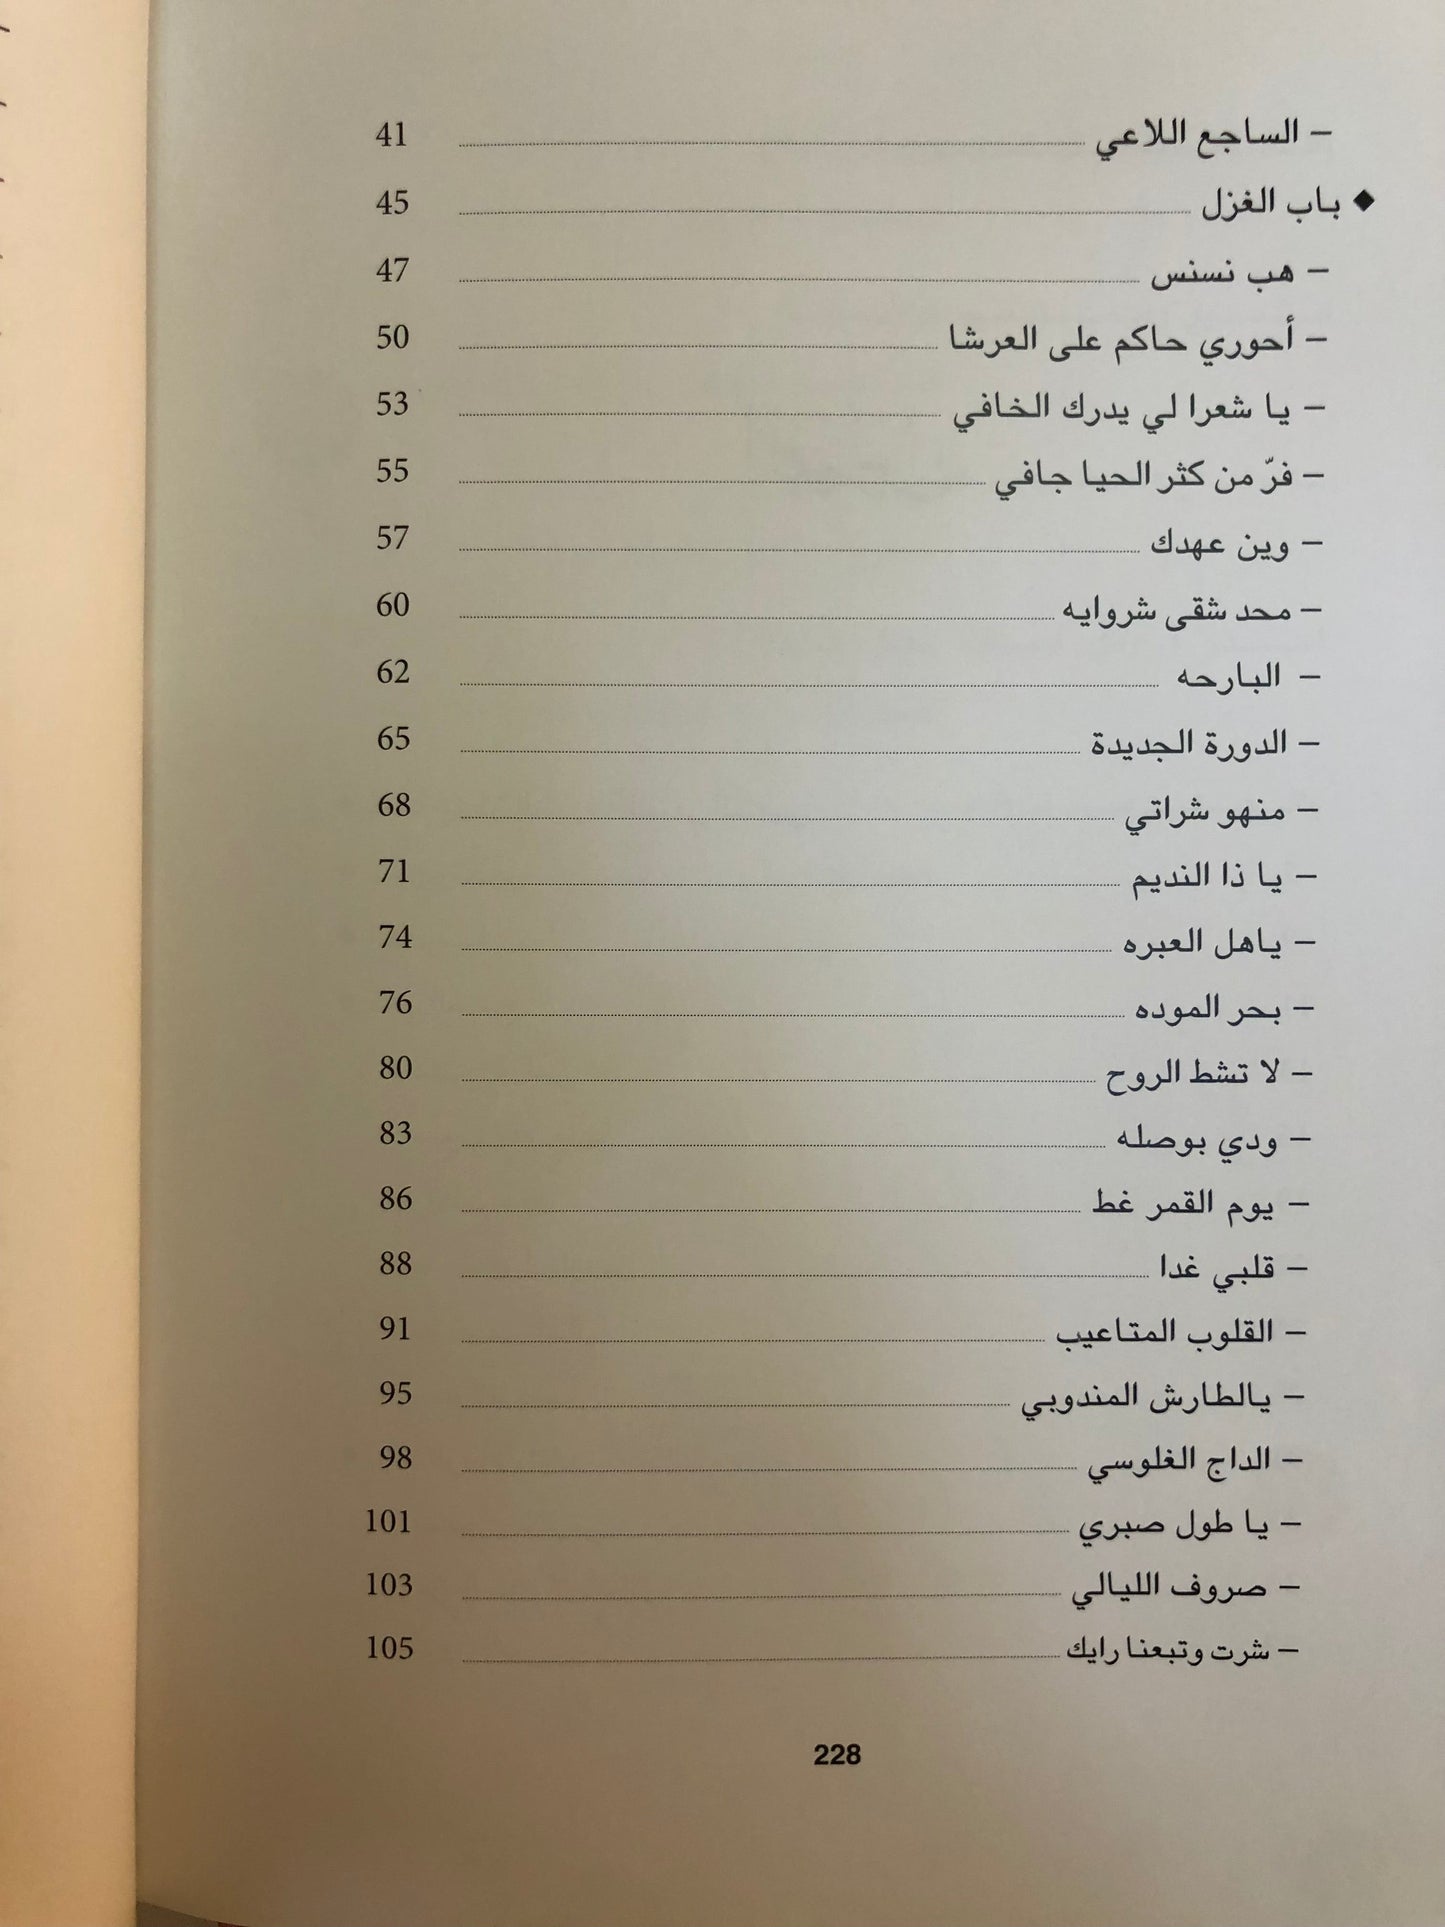 – الساجع اللاعي ........ 41
◆ باب الغزل ........ 45
– هب نسنس ........ 47
– أحوري حاكم على العرشا ........ 50
– يا شعرا لي يدرك الخافي ........ 53
– فرّ من كثر الحيا جافي ........ 55
– وين عهدك ........ 57
– محد شقى شروايه ........ 60
– البارحه ........ 62
– الدورة الجديدة ........ 65
– منهو شراتي ........ 68
– يا ذا النديم ........ 71
– ياهل العبره ........ 74
– بحر الموده ........ 76
– لا تشط الروح ........ 80
– ودي بوصله ........ 83
– يوم القمر غط ........ 86
– قلبي غدا ........ 88
– القلوب المتاعيب ........ 91
– يالطارش المندوبي ........ 95
– الداج الغلوسي ........ 98
– يا طول صبري ........ 101
– صروف الليالي ........ 103
– شرت وتبعنا رايك ........ 105
228